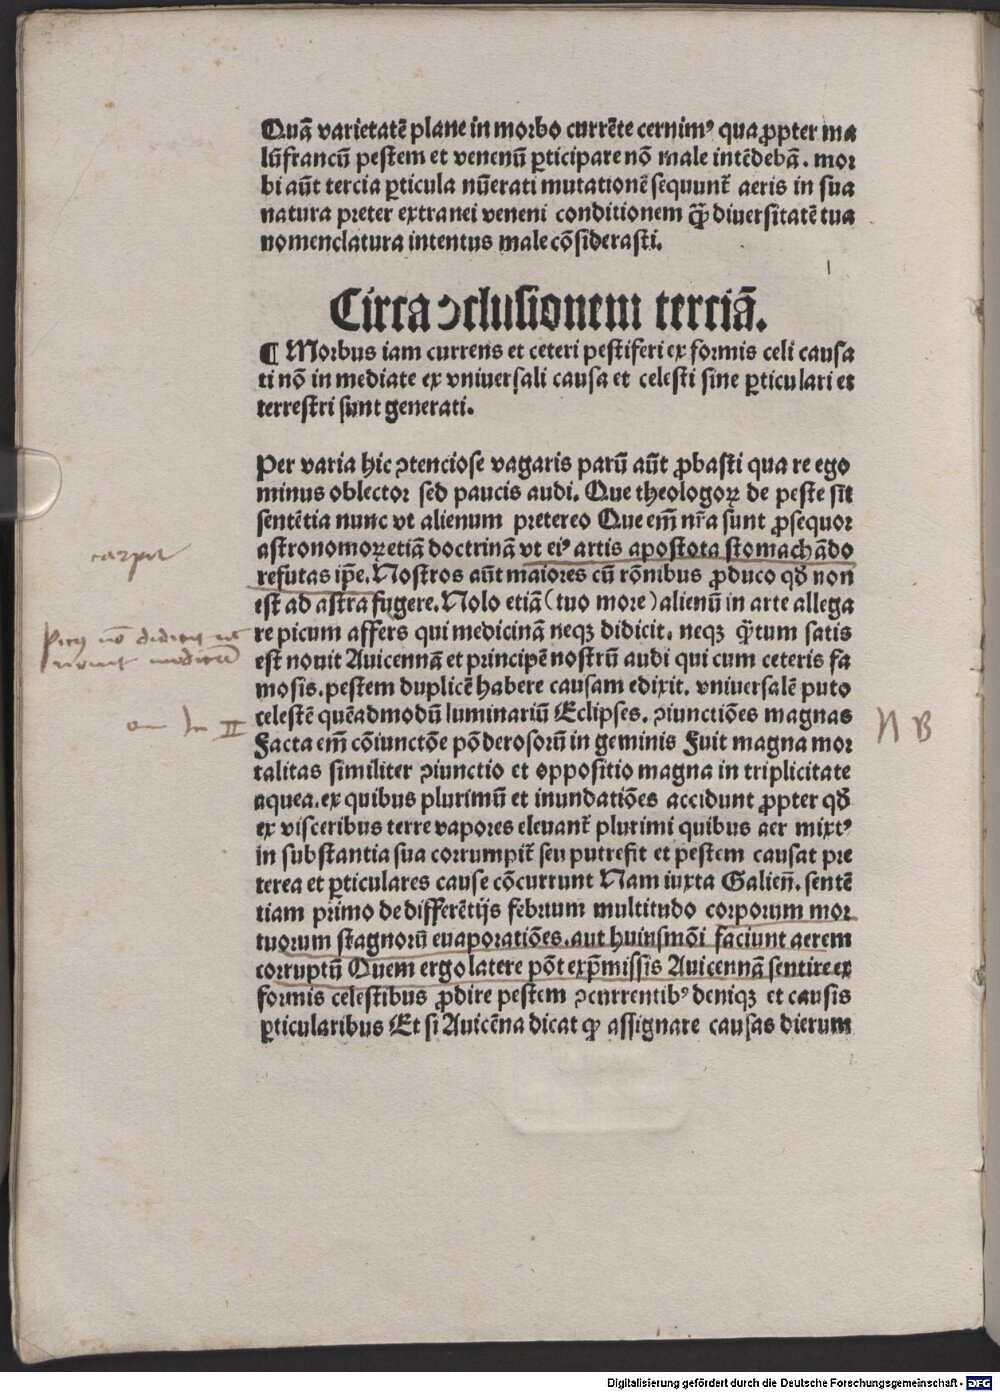 Quā varietatē plane in morbo currēte cernimꝰ qua ꝓpter ma
lū francū pestem et venenū ꝑticipare nō male intēdebā. mor
bi aūt tercia ꝑticula nūerati mutationē sequunt̃ aeris in sua
natura preter extranei veneni conditionem q̄ꝫ diuersitatē tua
nomenclatura intentus male cōsiderasti.
Circa ↄclusionem terciā.
¶ Morbus iam currens et ceteri pestiferi ex formis celi causa
ti nō in mediate ex vniuersali causa et celesti sine ꝑticulari et
terrestri sunt generati.
Per varia hic ↄtenciose vagaris parū aūt ꝓbasti qua re ego
minus oblector sed paucis audi. Que theologoꝝ de peste sīt
sentētia nunc vt alienum pretereo Que em̄ nr̄a sunt ꝓsequor
astronomoꝝ etiā doctrinā vt eiꝰ artis apostota stomachādo
carpit
refutas ip̄e. Nostros aūt maiores cū rōnibus ꝓduco qđ non
est ad astra fugere. Nolo etiā (tuo more) alienū in arte allega
re picum affers qui medicinā neqꝫ didicit. neqꝫ q̄tum satis
est nouit Auicennā et principē nostrū audi qui cum ceteris fa
mosis. pestem duplicē habere causam edixit. vniuersalē puto
celestē quēadmodū luminariū Eclipses. ↄiunctiōes magnas
II
N B
Facta em̄ cōiunctōe pōderosorū in geminis Fuit magna mor
talitas similiter ↄiunctio et oppositio magna in triplicitate
aquea. ex quibus plurimū et inundatiōes accidunt ꝓpter qđ
ex visceribus terre vapores eleuant̃ plurimi quibus aer mixtꝰ
in substantia sua corrumpit̃ seu putrefit et pestem causat pre
terea et ꝑticulares cause cōcurrunt Nam iuxta Galieñ. sentē
tiam primo de differētijs febrium multitudo corporum mor
tuorum stagnorū euaporatiōes. aut huiusmōi faciunt aerem
corruptū Quem ergo latere pōt exp̄missis Auicennā sentire ex
formis celestibus ꝓdire pestem ↄcurrentibꝰ deniqꝫ et causis
ꝑticularibus Et si Auicēna dicat ꝙ assignare causas dierum
Digitalisierung gefördert durch die Deutsche Forschungsgemeinschaft - DFG